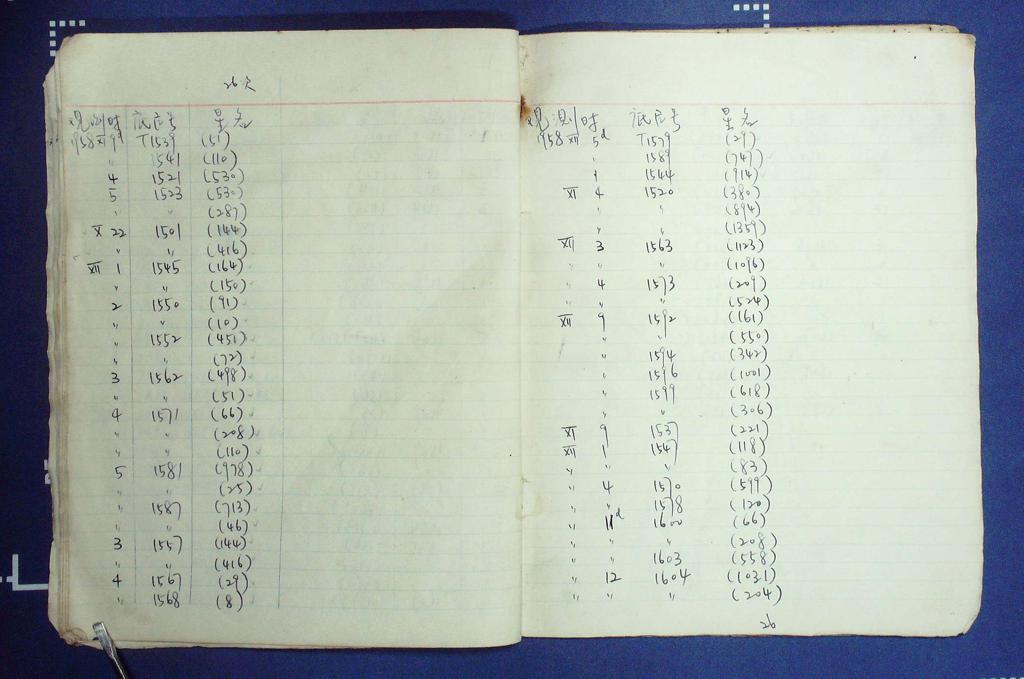 26次
观测时 底片号 星名
1958 XI 9d T1539 (51)
" 1541 (110)
4 1521 (530)
5 1523 (530)
" " (287)
X 22 1501 (144)
" " (416)
XII 1 1545 (164)
" " (150)
2 1550 (91)
" " (10)
" 1552 (451)
" " (72)
3 1562 (498)
" " (51)
4 1571 (66)
" " (208)
" " (110)
5 1581 (978)
" " (25)
" 1587 (713)
" " (46)
3 1557 (144)
" " (416)
4 1567 (29)
" 1568 (8)
观测时 底片号 星名
1958 XII 5d T1579 (29)
" 1589 (747)
" 1544 (914)
XI 4 1520 (380)
" " (894)
" " (1359)
XII 3 1563 (1123)
" " (1096)
4 1573 (209)
" " (524)
XII 9 1592 (161)
" " (550)
" 1594 (342)
" 1596 (1001)
" 1599 (618)
" " (306)
XI 9 1537 (221)
XII 1 1547 (118)
" " " (83)
" 4 1570 (599)
" " 1578 (120)
" 11d 1600 (66)
" " " (208)
" " 1603 (558)
" 12 1604 (1031)
" " " (204)
26